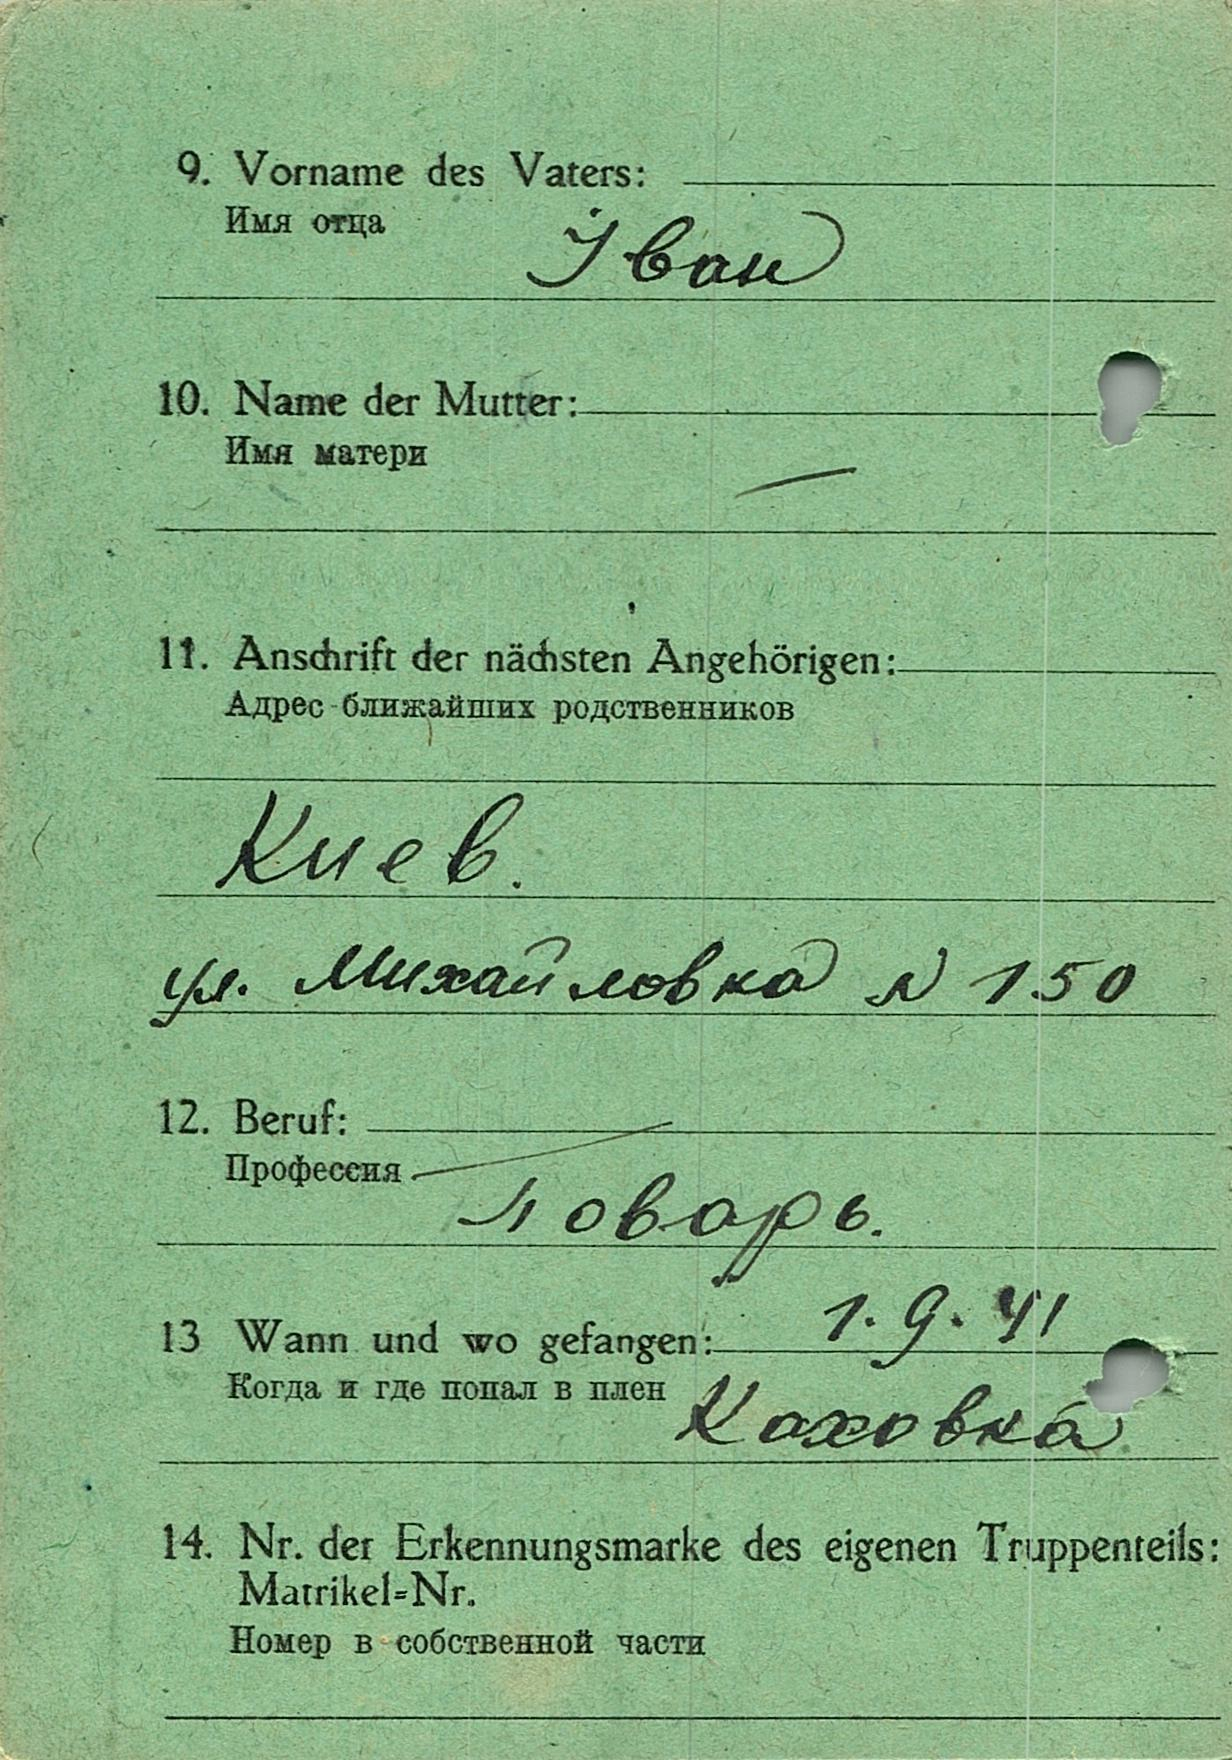 9. Vorname des Vaters:
Имя отца
Іван
10. Name der Mutter:
Имя матери
—
11. Anschrift der nächsten Angehörigen:
Адрес ближайших родственников
Киев.
ул. Михайловка N 150
12. Beruf:
Профессия
поварь.
13 Wann und wo gefangen: 1.9.41
Когда и где попал в плен Каховка
14. Nr. der Erkennungsmarke des eigenen Truppenteils:
Matrikel=Nr.
Номер в собственной части